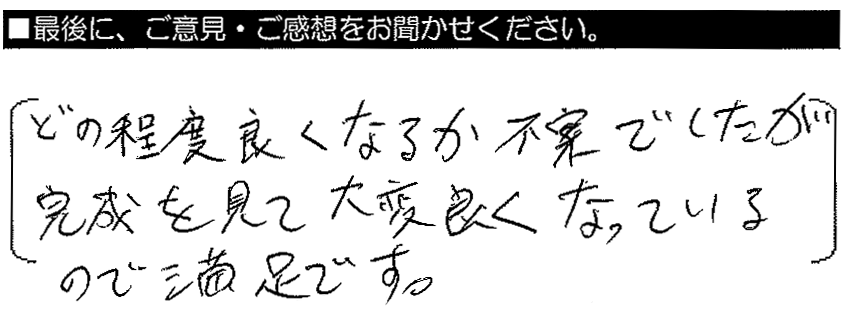 ■最後に、ご意見・ご感想をお聞かせください。
どの程度良くなるか不案でしたが
完成を見て大変良くなっている
ので満足です。